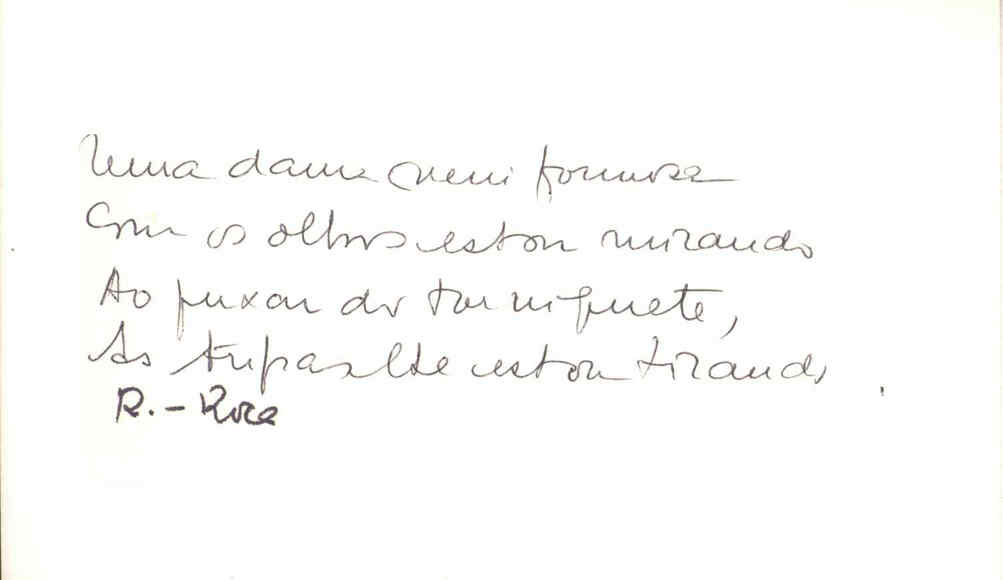 Uma dama mui formosa
Com os olhos estou mirando
Ao puxar do torniquete,
As tripas lhe estou tirando
R. - Roca